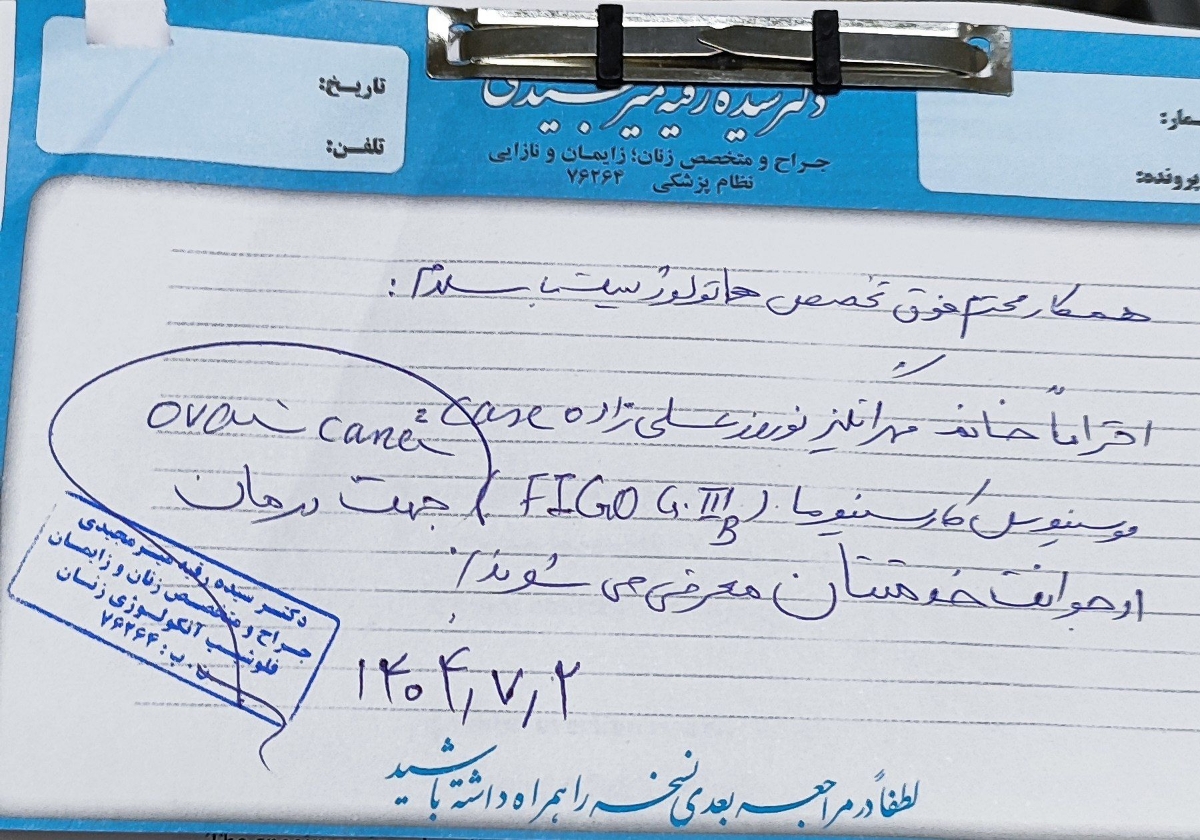 تاریخ:
تلفن:
دکتر سیده رقیه میر
جراح و متخصص زنان؛ زایمان و نازایی
نظام پزشکی ۷۶۲۶۴
پرونده:
همکار محترم فوق تخصص هماتولوژیست با سلام :
احتراماً خانم مهرانگیز نوروزعلی زاده case ovarian cancer
موسینوس کارسینوما (FIGO G.III B) جهت درمان
ارجوانت خدمتتان معرفی می شوند.
۱۴۰۴/۷/۲
دکتر سیده رقیه میرمجیدی
جراح و متخصص زنان و زایمان
فلوشیپ آنکولوژی زنان
ن. پ: ۷۶۲۶۴
لطفاً در مراجعه بعدی نسخه را همراه داشته باشید